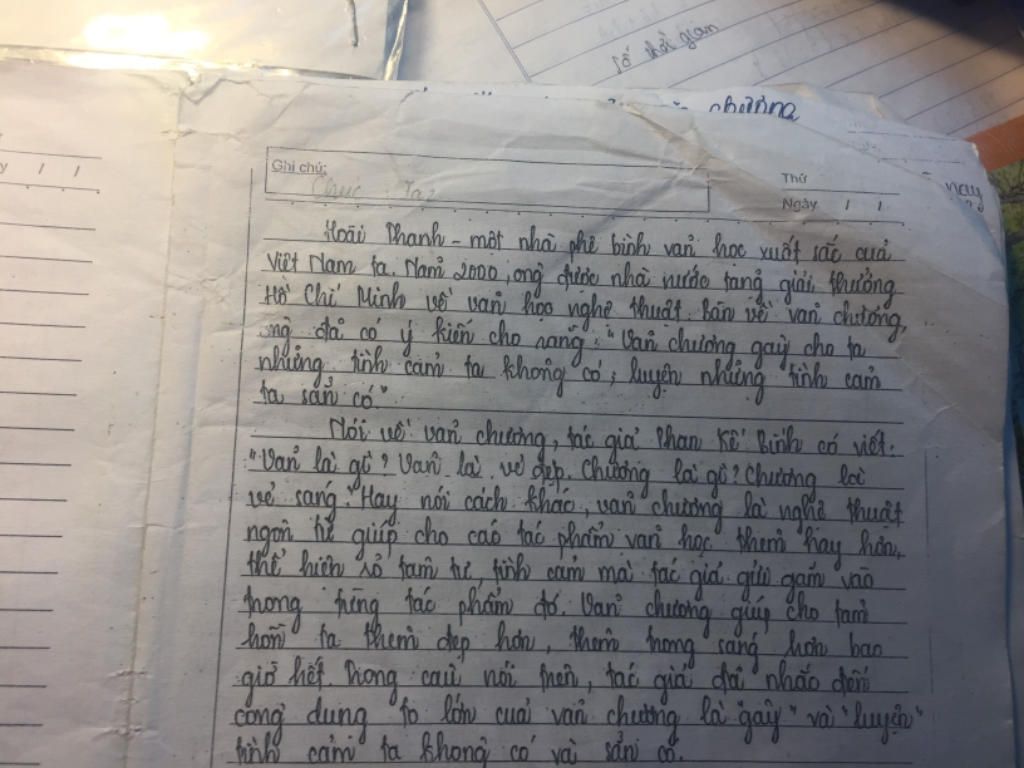 số thời gian
chương
nay
y / /
Ghi chú:
Thứ
Ngày / /
Hoài Thanh - một nhà phê bình văn học xuất sắc của
Việt Nam ta. Năm 2000, ông được nhà nước tặng giải thưởng
Hồ Chí Minh về văn học nghệ thuật. Bàn về văn chương,
ông đã có ý kiến cho rằng: "Văn chương gây cho ta
những tình cảm ta không có, luyện những tình cảm
ta sẵn có"
Nói về văn chương, tác giả Phan Kế Bính có viết:
"Văn là gì? Văn là vẻ đẹp. Chương là gì? Chương là
vẻ sáng". Hay nói cách khác, văn chương là nghệ thuật
ngôn từ giúp cho các tác phẩm văn học thêm hay hơn,
thể hiện rõ tâm tư, tình cảm mà tác giả gửi gắm vào
trong từng tác phẩm đó. Văn chương giúp cho tâm
hồn ta thêm đẹp hơn, thêm trong sáng hơn bao
giờ hết. Trong câu nói trên, tác giả đã nhắc đến
công dung to lớn của văn chương là "gây" và "luyện"
tình cảm ta không có và sẵn có.